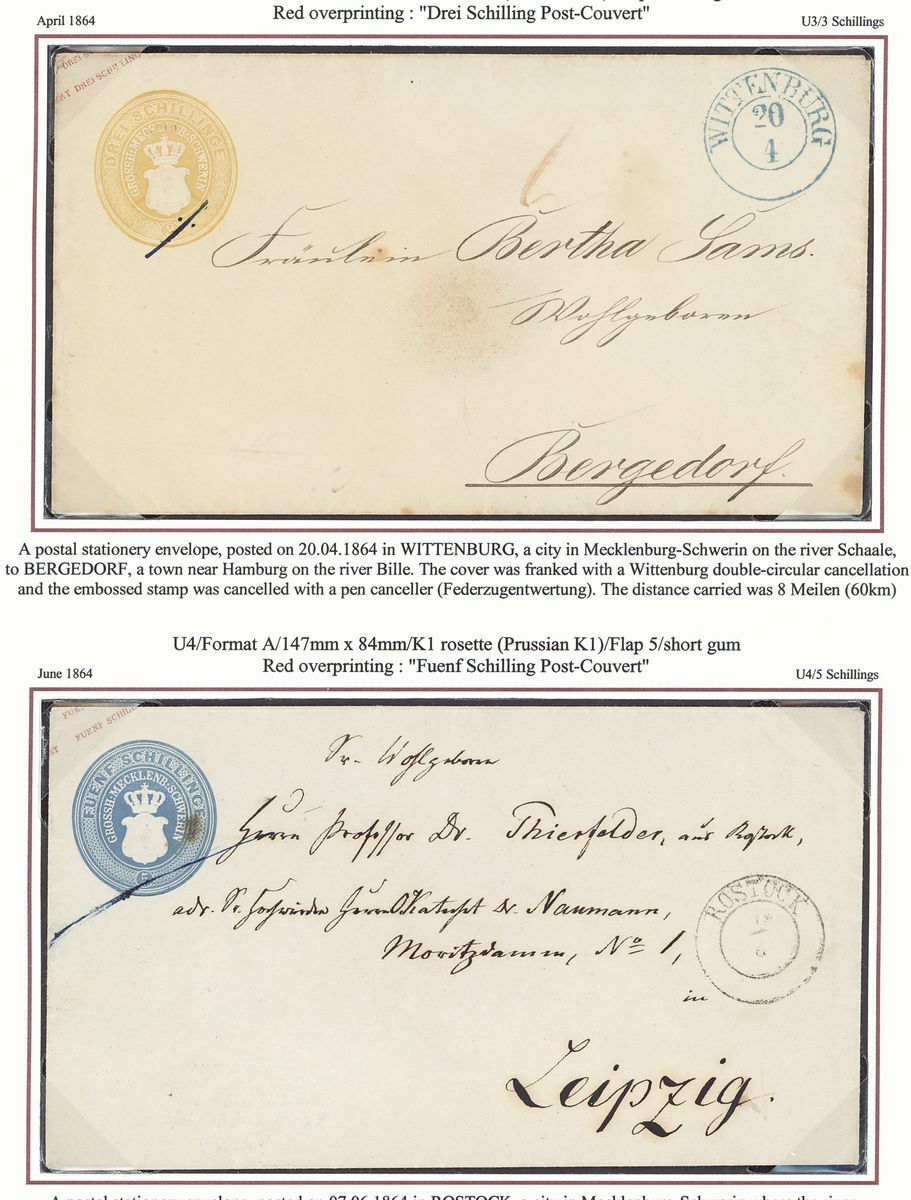 Red overprinting : "Drei Schilling Post-Couvert"
April 1864
U3/3 Schillings
DREI SCHILLING
ERT DREI SCHILLING
DREI SCHILLINGE
GROSSH-MECKLENB-SCHWERIN
WITTENBURG
20
4
Fräulein Bertha Sams.
Wohlgeboren
Bergedorf.
A postal stationery envelope, posted on 20.04.1864 in WITTENBURG, a city in Mecklenburg-Schwerin on the river Schaale,
to BERGEDORF, a town near Hamburg on the river Bille. The cover was franked with a Wittenburg double-circular cancellation
and the embossed stamp was cancelled with a pen canceller (Federzugentwertung). The distance carried was 8 Meilen (60km)
U4/Format A/147mm x 84mm/K1 rosette (Prussian K1)/Flap 5/short gum
Red overprinting : "Fuenf Schilling Post-Couvert"
June 1864
U4/5 Schillings
FUENF SCHILL
FUENF SCHILLINGE
GROSSH-MECKLENB-SCHWERIN
5
Sr. Wohlgeboren
Herrn Professor Dr. Thierfelder, aus Rostock,
adr. Sr. Hochwürden Herrn Katechet Dr. Naumann,
Moritzdamm, No 1,
ROSTOCK
in
Leipzig.
A postal stationery envelope, posted on 07.06.1864 in ROSTOCK, a city in Mecklenburg-Schwerin where the river